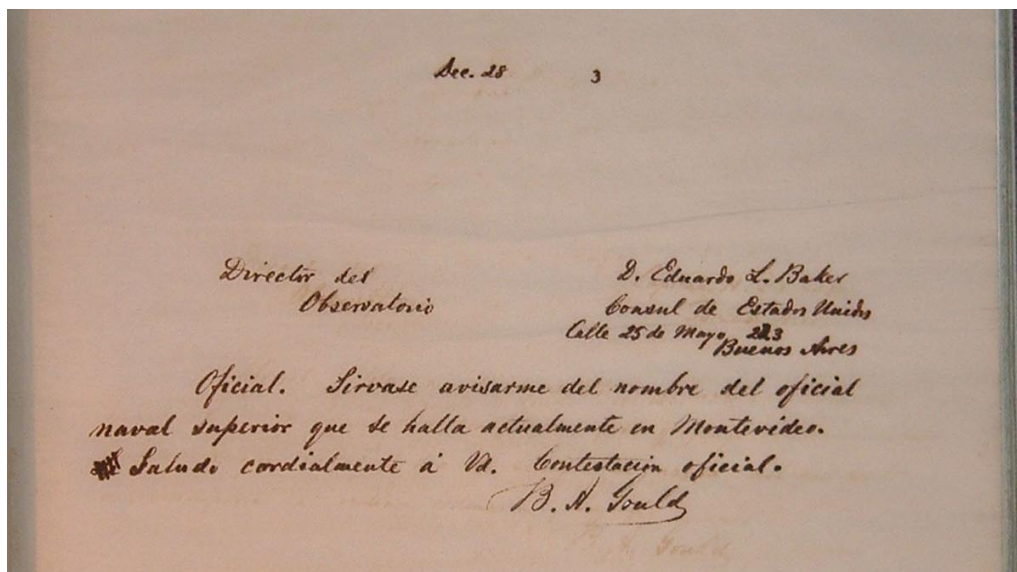 Dec. 28 3
Director del D. Eduardo L. Baker
Observatorio Consul de Estados Unidos
Calle 25 de Mayo 223
Buenos Aires
Oficial. Sirvase avisarme del nombre del oficial
naval superior que se halla actualmente en Montevideo.
Saludo cordialmente á Vd. Contestacion oficial.
B. A. Gould